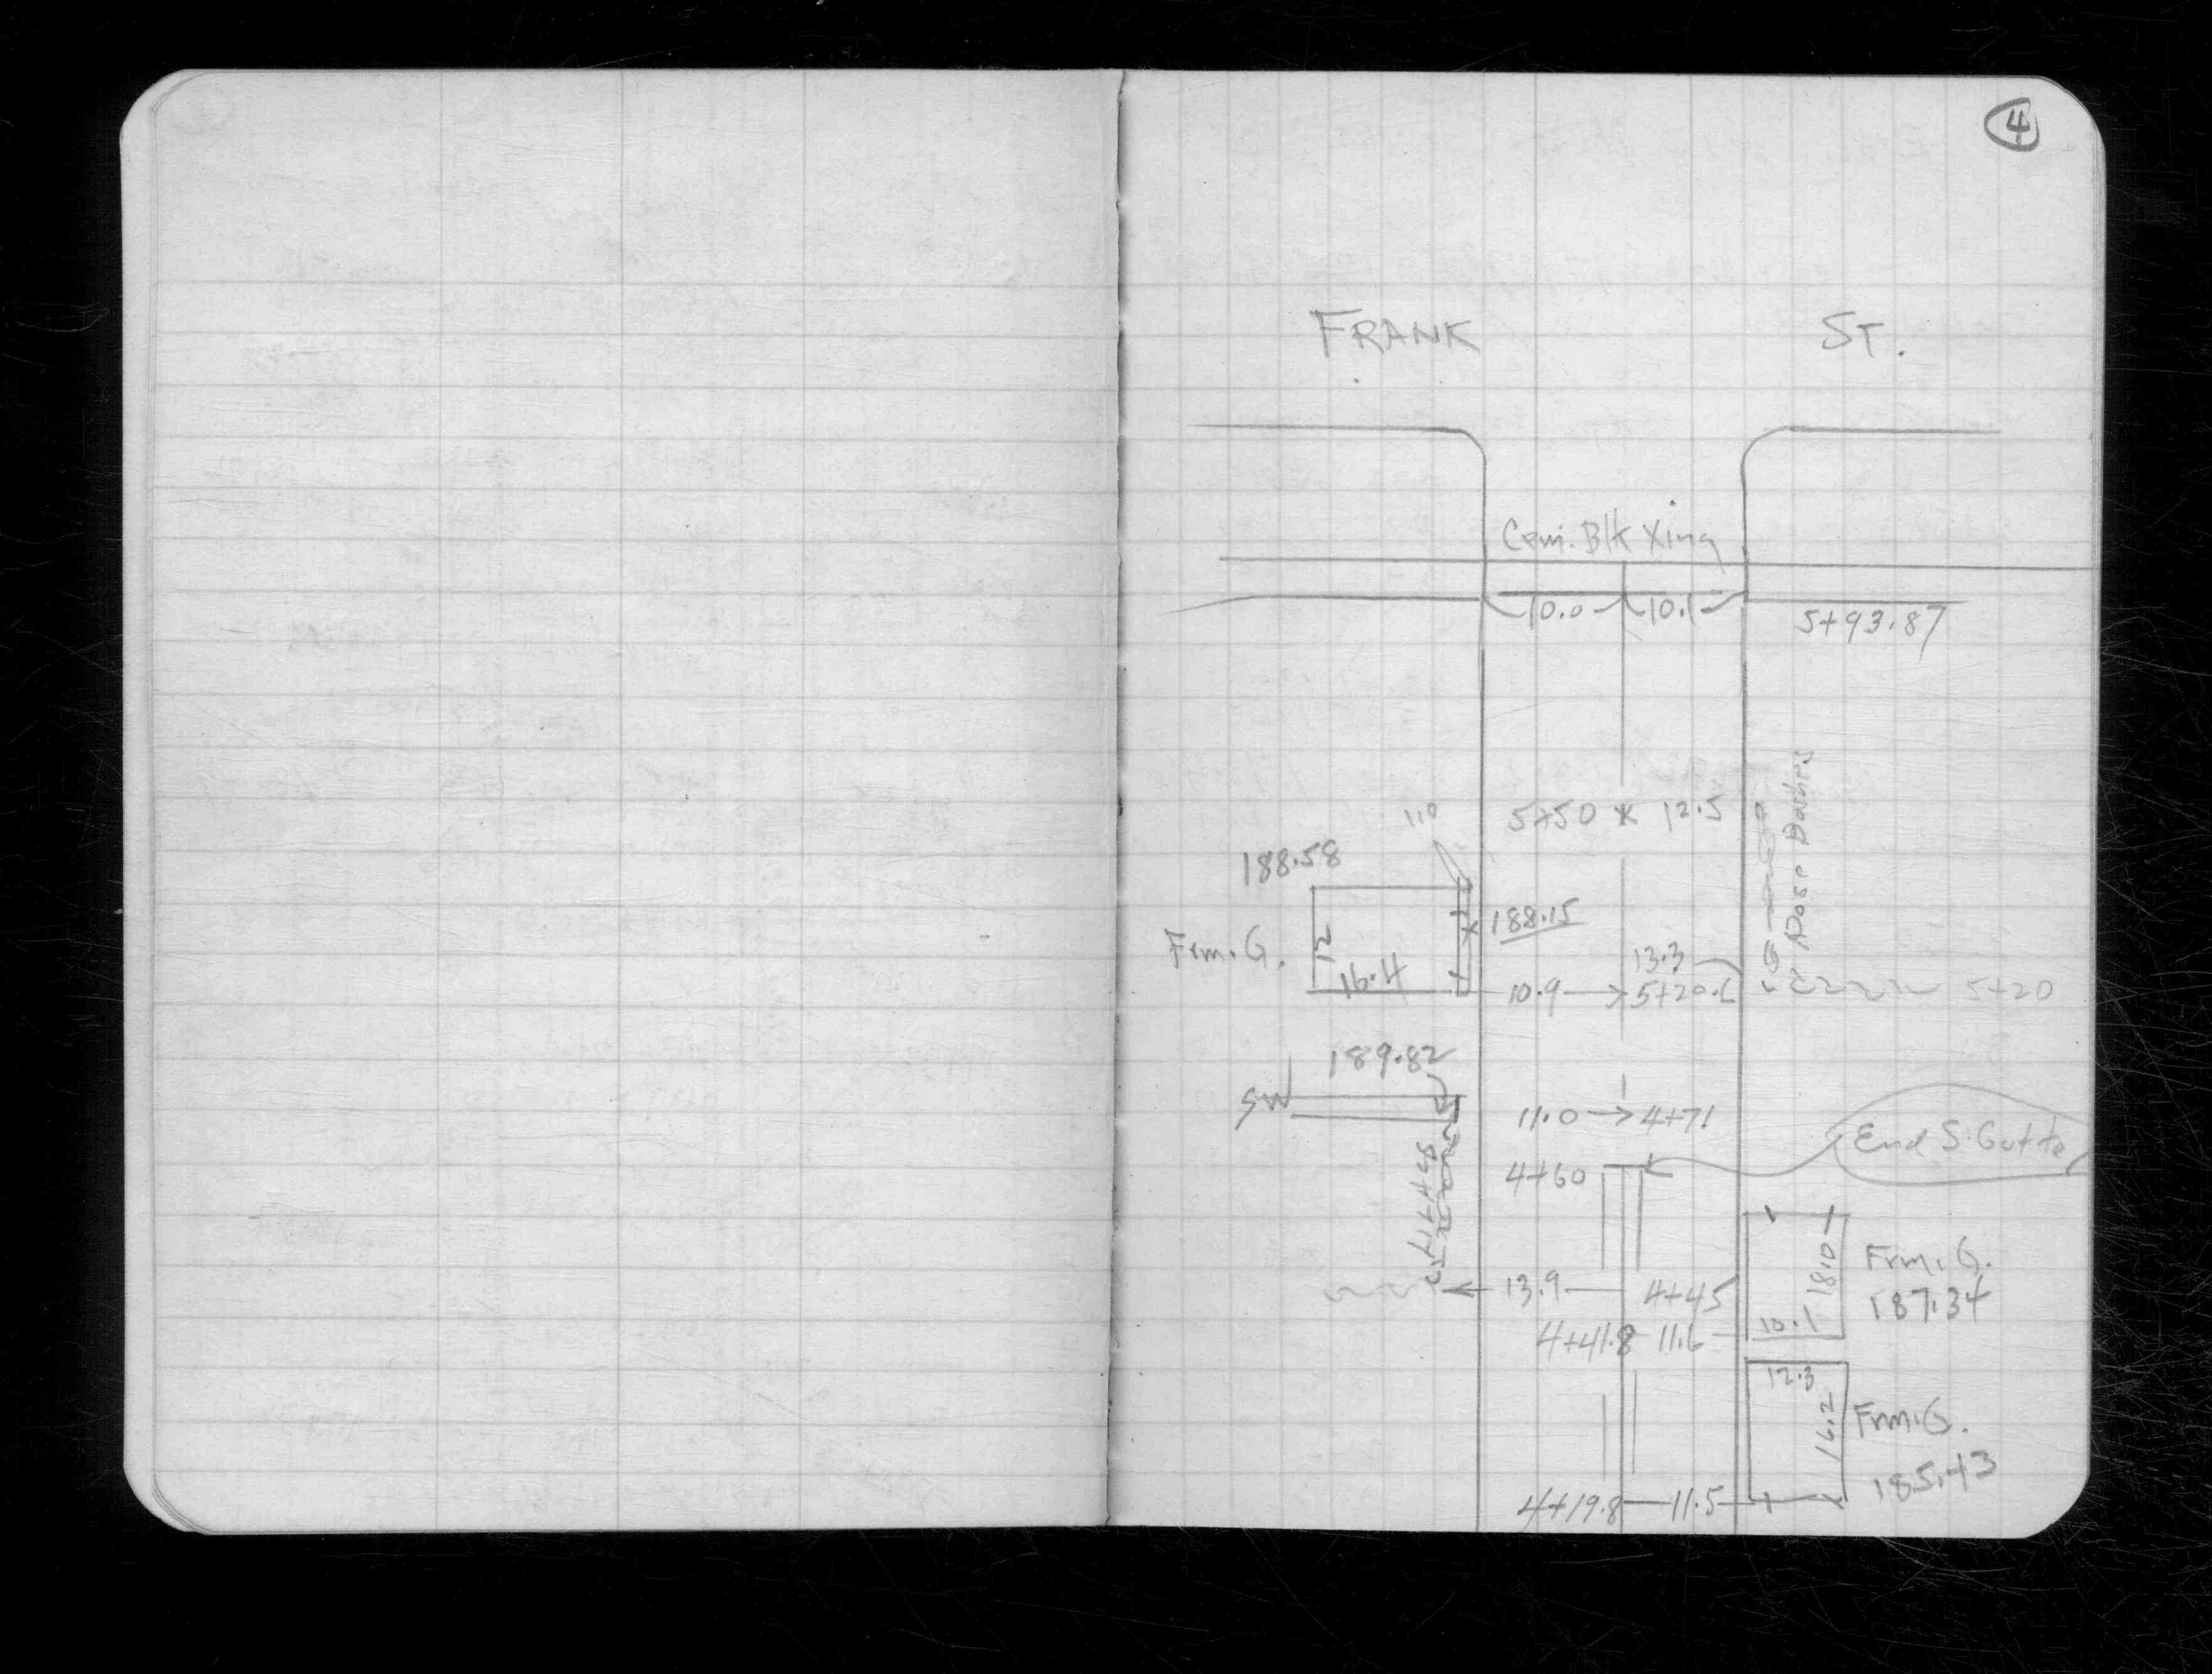 4
FRANK ST.
Cem. Blk Xing
10.0 10.1
5+93.87
5+50 12.5
110
188.58
Rose Bushes
188.15
Frm. G.
12
16.4
13.3
10.9 5+20.6
5+20
189.82
SW
11.0 4+71
End S. Gutter
4+60
13.9 4+45
18.0
Frm. G.
187.34
10.1
4+41.8 11.6
12.3
16.2
Frm. G.
185.43
4+19.8 11.5